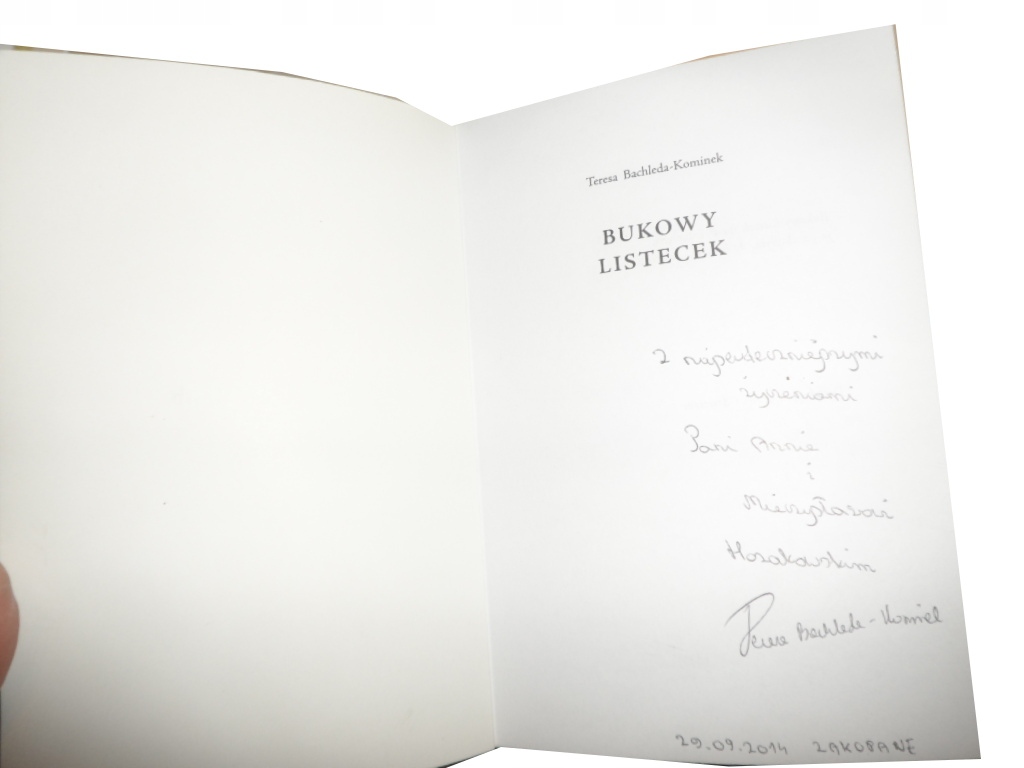 Teresa Bachleda-Kominek
BUKOWY
LISTECEK
Z najserdeczniejszymi
życzeniami
Pani Annie
i
Mieczysławowi
Teresa Bachleda-Kominek
29.09.2014 ZAKOPANE